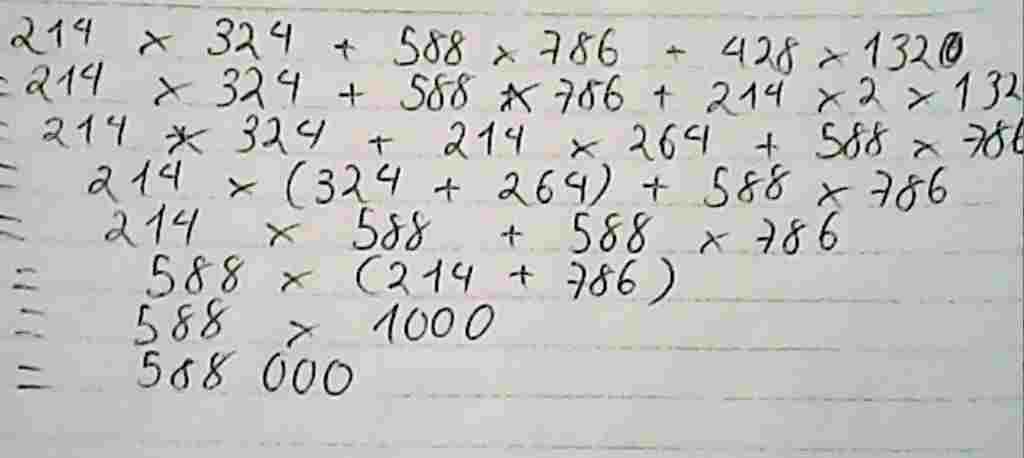 214 × 324 + 588 × 786 + 428 × 132
= 214 × 324 + 588 × 786 + 214 × 2 × 132
= 214 × 324 + 214 × 264 + 588 × 786
= 214 × (324 + 264) + 588 × 786
= 214 × 588 + 588 × 786
= 588 × (214 + 786)
= 588 × 1000
= 588 000